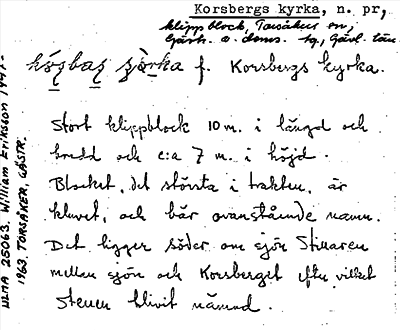 Korsbergs kyrka, n. pr,
klippblock, Torsåkers sn,
Gästr. ö. doms. hg, Gävl. län.
f. Korsbergs kyrka.
Stort klippblock 10 m. i längd och
bredd och c:a 7 m. i höjd.
Blocket, det största i trakten, är
kluvet, och bär ovanstående namn.
Det ligger söder om sjön
mellan sjön och Korsberget efter vilket
stenen blivit nämnd.
ULMA 25063. William Eriksson 1941-
1963. TORSÅKER, GÄSTR.